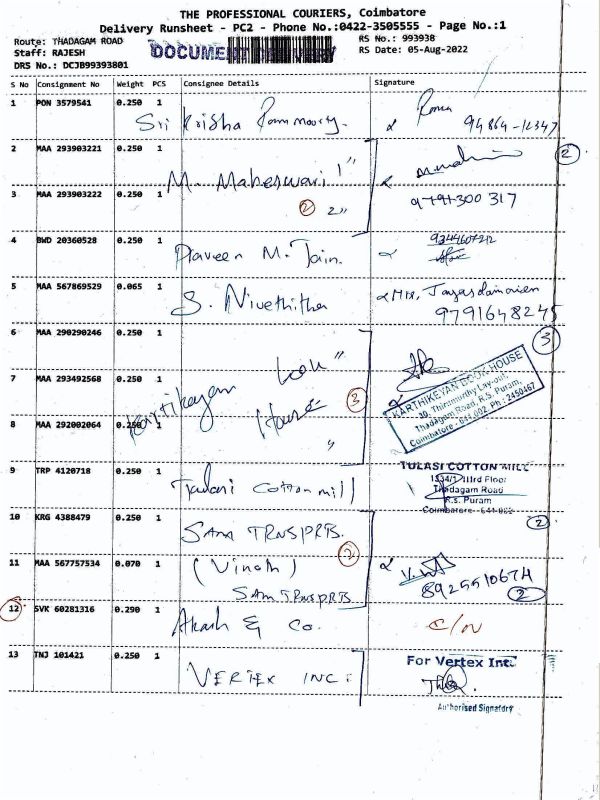 THE PROFESSIONAL COURIERS, Coimbatore
Delivery Runsheet - PC2 - Phone No.:0422-3505555 - Page No.:1
Route: THADAGAM ROAD RS No.: 993938
Staff: RAJESH DOCUMENT RS Date: 05-Aug-2022
DRS No.: DCJB99393801
S No Consignment No Weight PCS Consignee Details Signature
1 PON 3579541 0.250 1
Sri Krisha Rammoorty. 94864-12347
2 MAA 293903221 0.250 1
M. Maheswari 1" 2
3 MAA 293903222 0.250 1 9791300 317
2 2"
4 BWD 20360528 0.250 1 9344607212
Praveen M. Jain.
5 MAA 567869529 0.065 1
S. Nivethitha 9791648245
6 MAA 290290246 0.250 1 3
7 MAA 293492568 0.250 1
Kartikayan House 3
KARTHIKEYAN BOOK HOUSE
30, Thirumurthy Lay-out,
Thadagam Road, R.S. Puram,
Coimbatore - 641 002. Ph : 2450467
8 MAA 292002064 0.250 1
9 TRP 4120718 0.250 1 TULASI COTTON MILL
1334/1 IIIrd Floor
Tulasi cotton mill Thadagam Road
R.s. Puram
Coimbatore - 641 002
10 KRG 4388479 0.250 1 2
SAM TRNSPRTS.
11 MAA 567757534 0.070 1
(Vinoth) 2
SAM TRNSPRTS 8925510674 2
12 SVK 60281316 0.290 1
Akash & Co. C/N
13 TNJ 101421 0.250 1 For Vertex Inc.
VERTEX INC.
Authorised Signatory